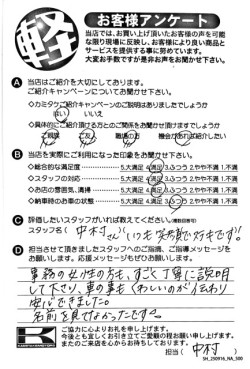 軽
お客様アンケート
当店では、お買い上げ頂いたお客様の声を可能
な限り現場に反映し、お客様により良い商品と
サービスを提供する事に努めています。
大変お手数ですが是非お声をお聞かせ下さい。
A 当店はご紹介を大切にしております。
ご紹介キャンペーンについてお聞かせ下さい。
◇カミタケご紹介キャンペーンのご説明はありましたでしょうか
はい いいえ
◇具体的にご紹介頂ける方とのご関係をお聞かせ頂けますでしょうか
親戚 ご友人 職場の方 機会があれば紹介したい
B 当店を実際にご利用になった印象をお聞かせ下さい。
◇総合的な満足度 5.大満足 4.満足 3.ふつう 2.やや不満 1.不満
◇スタッフの対応 5.大満足 4.満足 3.ふつう 2.やや不満 1.不満
◇お店の雰囲気、清掃 5.大満足 4.満足 3.ふつう 2.やや不満 1.不満
◇納車時のお車の状態 5.大満足 4.満足 3.ふつう 2.やや不満 1.不満
C 評価したいスタッフがいれば教えてください。(複数回答可)
スタッフ名( 中村さん いつも笑顔で好きです!
D 担当させて頂きましたスタッフへのご指摘、ご指導メッセージを
お願いします。応援メッセージもぜひお願いします。
事務の女性の方も、すごく丁寧に説明
して下さり、車の事も(わいしの)が伝わり
安心できました。
名前を見せよかったですぐ。
K
ご協力に心よりお礼を申し上げます。
今後とも宜しくお引き立てご愛顧の程お願い申し上げます。
またのご来店を心からお待ちしております。
担当( 中村 )
SH_250916_NA_500